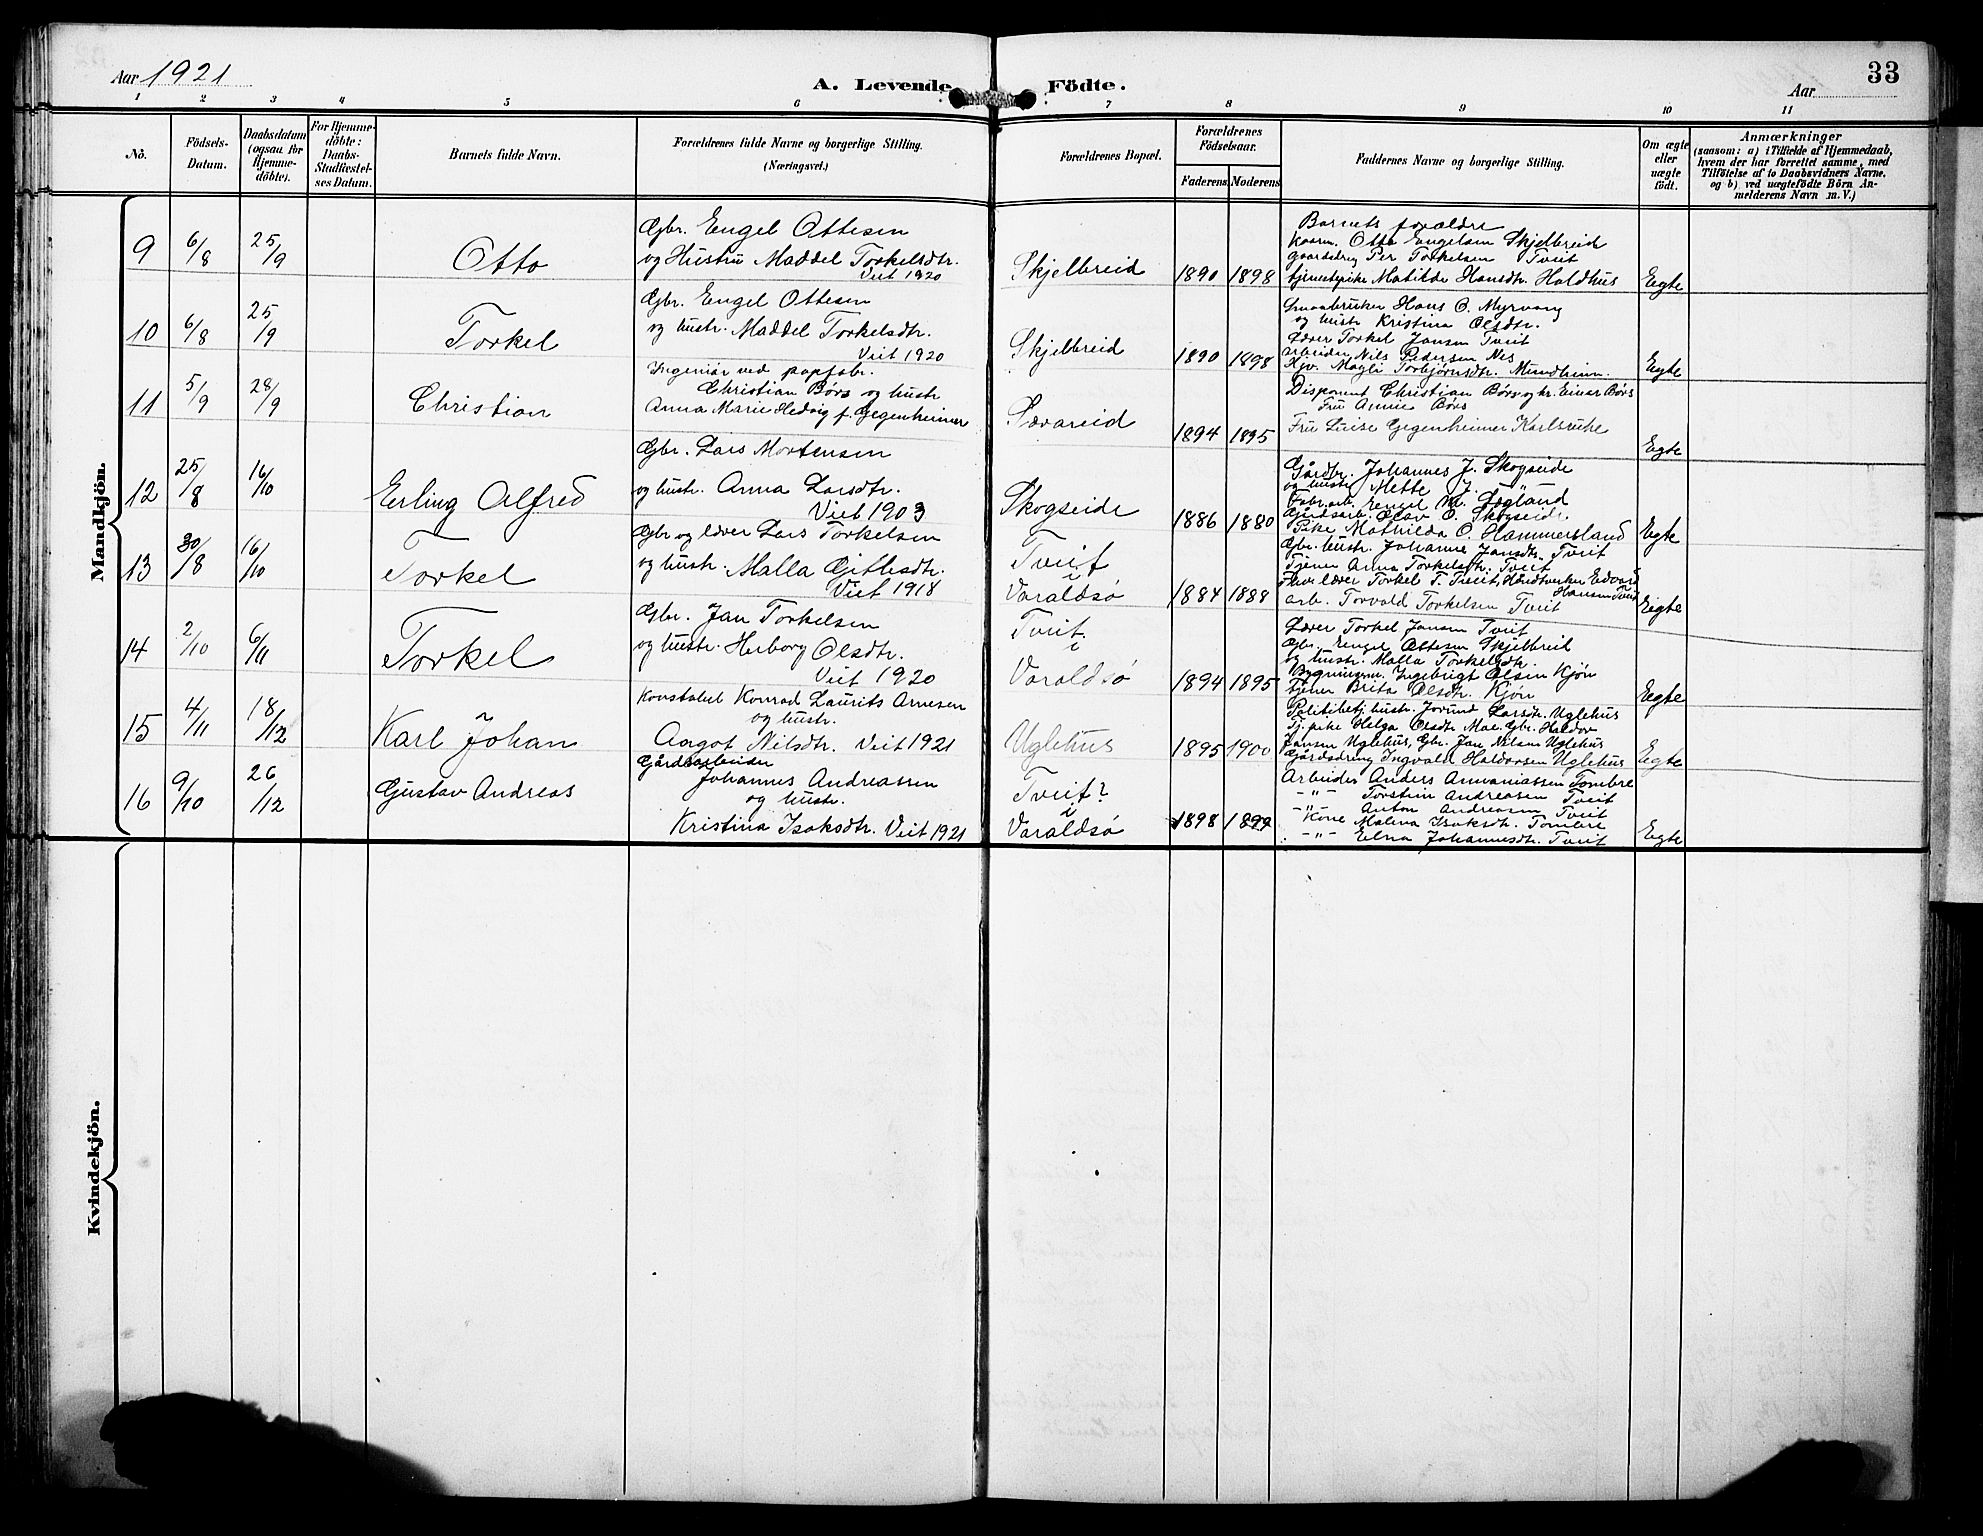 Aar 1921
A. Levende Födte.
33
Aar
1 2 3 4 5 6 7 8 9 10 11
No.
Födsels-Datum.
Daabsdatum (ogsaa for Hjemme-döbte).
For Hjemme-döbte: Daabs-Stadfæstel-ses Datum.
Barnets fulde Navn.
Forældrenes fulde Navne og borgerlige Stilling. (Næringsvei.)
Forældrenes Bopæl.
Forældrenes Födselsaar.
Faderens Moderens
Faddernes Navne og borgerlige Stilling.
Om ægte eller uægte født.
Anmærkninger
(saasom: a) i Tilfælde af Hjemmedaab, hvem der har forrettet samme, med Tilföielse af to Daabsvidners Navne, og b) ved uægtefödte Börn An-melderens Navn m. V.)
Mandkjön.
9 6/8 25/9 Otto
Gbr. Engel Ottesen
og Hustru Maddel Torkelsdtr.
Viet 1920
Skjelbreid 1890 1898
Barnets forældre
Kaarm. Otto Engelsen Skjelbreid
gaardsdrg Per Torkelsen Tveit
tjenestepike Matilde Hansdtr. Holdhus
Egte
10 6/8 25/9 Torkel
Gbr. Engel Ottesen
og hustr. Maddel Torkelsdtr.
Viet 1920
Skjelbreid 1890 1898
Smaabruker Hans O. Myrvang
og hustr Kristina Olsdtr.
Lærer Torkel Jansen Tveit
arbeider Nils Pedersen Nes
Magli Torbjörnsdtr. Mundheim.
Egte
11 5/9 28/9 Christian
Ingeniør ved papfabr.
Christian Börs og hustr
Anna Marie Hedvig f. Gegenheimer
Sævareid 1894 1895
Disponent Christian Börs og hr. Einar Börs
Fru Annie Börs
Fru Luise Gegenheimer Karlsruhe
Egte
12 25/8 16/10 Erling Alfred
Gbr. Lars Mortensen
og hustr. Anna Larsdtr.
Viet 1903
Skogseide 1886 1880
Gårdbr. Johannes J. Skogseide
og hustr Mette J. "
Fabr.arb. Engel M. Løgland
Gårdsarb. Olav O. Skogseide.
Pike Mathilda O. Hammersland
Egte
13 30/8 16/10 Torkel
Gbr og lærer Lars Torkelsen
og hustr. Malla Gitlesdtr.
Viet 1918
Tveit
i
Varaldsø 1884 1888
Gbr. hustr. Johanne Jansdtr. Tveit
Tjener Anna Torkelsdtr. Tveit
lærer Torkel T. Tveit, Håndtverker Edvard
Hansen Tveit
arb. Torvald Torkelsen Tveit
Eigte
14 2/10 6/11 Torkel
Gbr. Jan Torkelsen
og hustr. Herborg Olsdtr.
Viet 1920
Tveit.
i
Varaldsø 1894 1895
Lærer Torkel Jansen Tveit
Gbr. Engel Ottesen Skjelbreid
og hustr. Malla Torkelsdtr.
Bygningsm. Ingebrigt Olsen Kjön
tjener Brita Olsdtr. Kjön
Egte
15 4/11 18/12 Karl Johan
Konstabel Konrad Laurits Arnesen
og hustr.
Aagot Nilsdtr. Viet 1921
Uglehus 1895 1900
Politibetj. hustr. Jorund Larsdtr. Uglehus
Tj. pike Helga Olsdtr. Mae. Gbr. Haldor
Jansen Uglehus, Gbr. Jan Nilsen Uglehus
Gårdsdreng Ingvald Haldorsen Uglehus
Egte
16 9/10 26/12 Gustav Andreas
Gårdsarbeider
Johannes Andreassen
og hustr.
Kristina Isaksdtr. Viet 1921
Tveit?
i
Varaldsø 1898 1899
Arbeider Anders Annaniassen Tombre
-"- Torstein Andreasen Tveit
-"- Anton Andreasen Tveit
Kone Malena Isaksdtr. Tombre
-"- Elna Johannesdtr. Tveit
Egte
Kvindekjön.